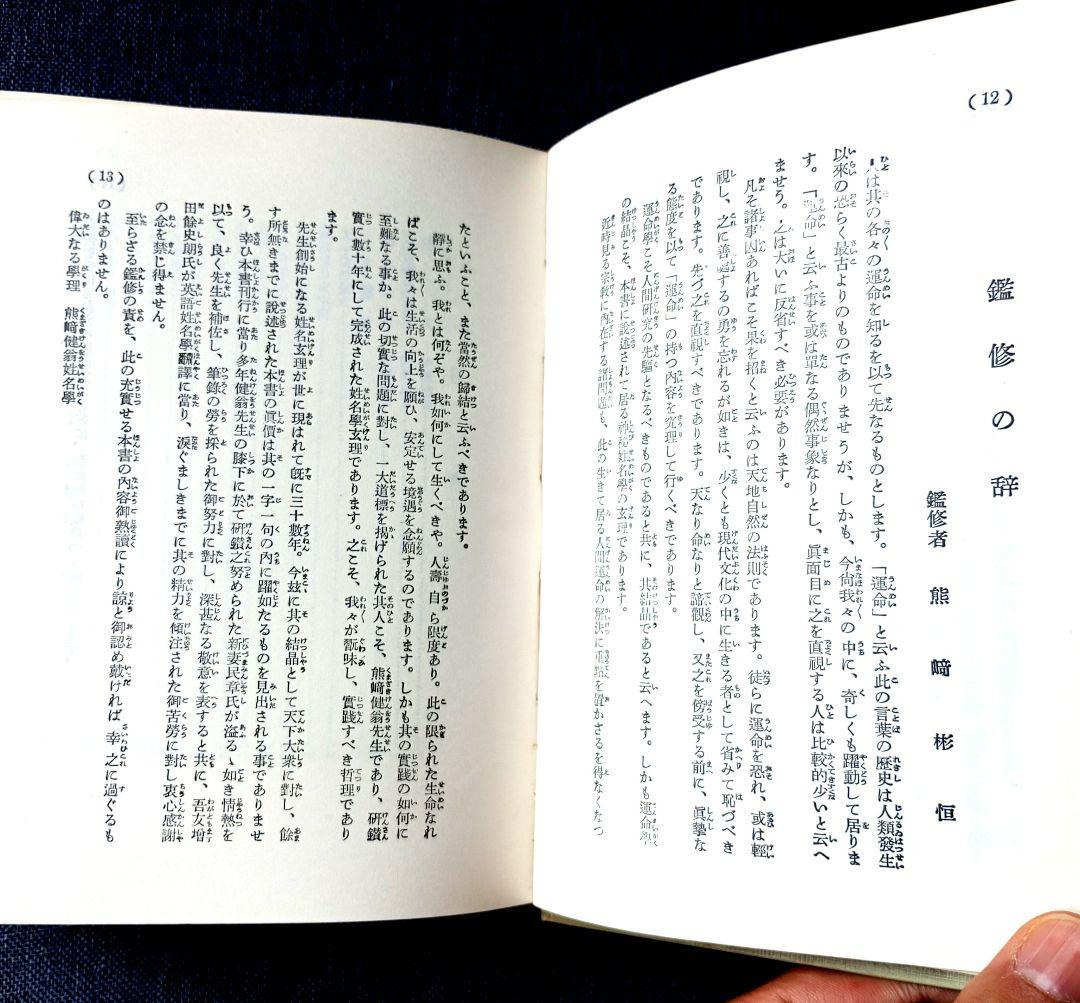 (12)
鑑修の辞
鑑修者 熊﨑彬恒
人は其の各々の運命を知るを以て先なるものとします。「運命」と云ふ此の言葉の歴史は人類發生
以來の恐らく最古よりのものでありませうが、しかも、今尙我々の中に、奇しくも躍動して居りま
す。「運命」と云ふ事を或は單なる偶然事象なりとし、眞面目に之を直視する人は比較的少いと云へ
ませう。之は大いに反省すべき必要があります。
凡そ諸事因あればこそ果を招くと云ふのは天地自然の法則であります。徒らに運命を恐れ、或は輕
視し、之に善處するの勇を忘れるが如きは、少くとも現代文化の中に生きる者として省みて恥づべき
であります。先づ之を直視すべきであります。天なり命なりと諦觀し、又之を傍受する前に、眞摯な
る態度を以て「運命」の持つ內容を究理して行くべきであります。
運命學こそ人間硏究の先驅となるべきものであると共に、其結晶であると云へます。しかも運命學
の結晶こそ、本書に說述されて居る神秘姓名學の玄理であります。
近時見る宗教に內在する諸問題も、此の生きて居る人間運命の解決に重點を置かさるを得なくなつ
(13)
たといふこと、また當然の歸結と云ふべきであります。
靜に思ふ。我とは何ぞや。我如何にして生くべきや。人壽自ら限度あり。此の限られた生命なれ
ばこそ、我々は生活の向上を願ひ、安定せる境遇を念願するのであります。しかも其の實踐の如何に
至難なる事か。此の切實な問題に對し、一大道標を揭げられた其人こそ、熊﨑健翁先生であり、硏鑽
實に數十年にして完成された姓名學玄理であります。之こそ、我々が翫味し、實踐すべき哲理であり
ます。
先生創始になる姓名玄理が世に現はれて旣に三十數年。今玆に其の結晶として天下大衆に對し、餘
す所無きまでに說述された本書の眞價は其の一字一句の內に躍如たるものを見出される事でありませ
う。幸ひ本書刊行に當り多年健翁先生の膝下に於て硏鑽之努められた新妻民章氏が溢るゝ如き情熱を
以て、良く先生を補佐し、筆錄の勞を採られた御努力に對し、深甚なる敬意を表すると共に、吾友增
田餘史朗氏が英語姓名學飜譯に當り、淚ぐましきまでに其の精力を傾注された御苦勞に對し衷心感謝
の念を禁じ得ません。
至らざる鑑修の責を、此の充實せる本書の內容御熟讀により諒と御認め戴ければ幸之に過ぐるも
のはありません。
偉大なる學理 熊﨑健翁姓名學